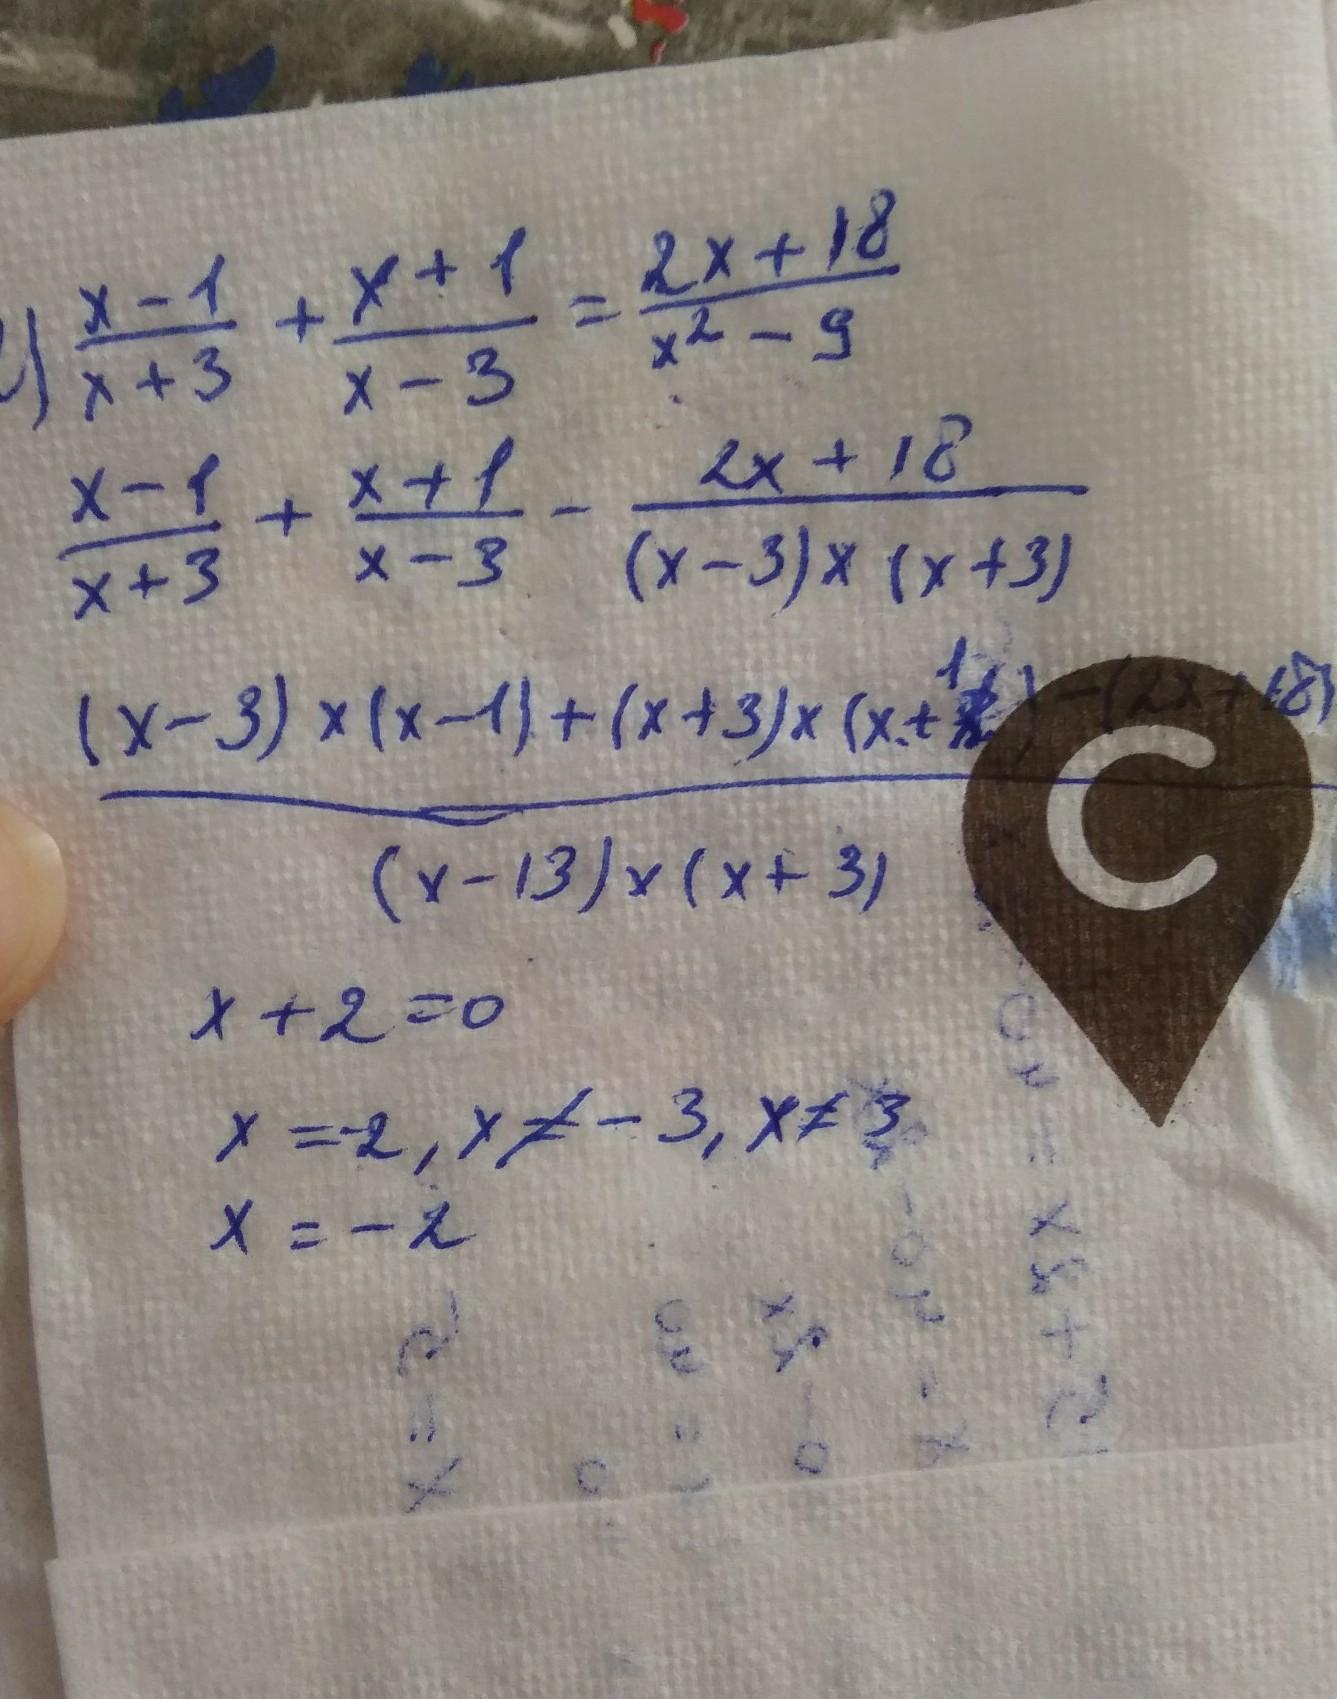 x-1/x+3 + x+1/x-3 = 2x+18/x²-9
x-1/x+3 + x+1/x-3 - 2x+18/(x-3)x(x+3)
(x-3)x(x-1)+(x+3)x(x+1)-(2x+18)
(x-13)x(x+3)
x+2=0
x=-2, x≠-3, x≠3
x=-2
C